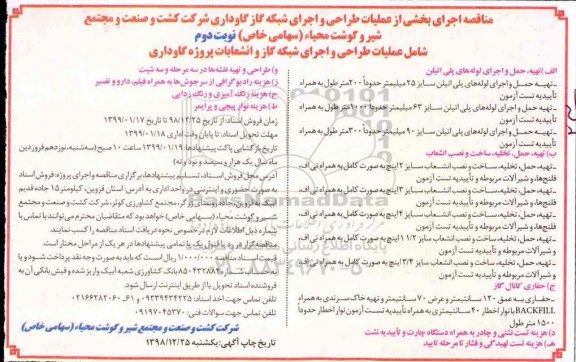 مناقصه اجرای بخشی از عملیات طراحی و اجرای شبکه گاز گاوداری شرکت کشت و صنعت و مجتمع
شیر و گوشت محیاء (سهامی خاص) نوبت دوم
شامل عملیات طراحی و اجرای شبکه گاز و انشعابات پروژه گاوداری
الف) تهیه، حمل و اجرای لوله‌های پلی اتیلن
ـ تهیه حمل و اجرای لوله‌های پلی اتیلن سایز ۲۵ میلیمتر حدوداً ۲۰۰ متر طول به همراه
تأییدیه تست آزمون
ـ تهیه حمل و اجرای لوله‌های پلی اتیلن سایز ۶۳ میلیمتر حدوداً ۱۰۰۰ متر طول به همراه
تأییدیه تست آزمون
ـ تهیه حمل و اجرای لوله‌های پلی اتیلن سایز ۹۰ میلیمتر حدوداً ۳۰۰ متر طول به همراه
تأییدیه تست آزمون
ب) تهیه، حمل، تخلیه، ساخت و نصب انشعاب
ـ تهیه، حمل، تخلیه، ساخت و نصب انشعاب سایز ۲ اینچ به صورت کامل به همراه تی اف
فلنج‌ها، و شیرآلات مربوطه و تأییدیه تست آزمون
ـ تهیه، حمل، تخلیه، ساخت و نصب انشعاب سایز ۳ اینچ به صورت کامل به همراه تی اف
فلنج‌ها، و شیرآلات مربوطه و تأییدیه تست آزمون
ـ تهیه، حمل، تخلیه، ساخت و نصب انشعاب سایز ۴ اینچ به صورت کامل به همراه تی اف
فلنج‌ها، و شیرآلات مربوطه و تأییدیه تست آزمون
ـ تهیه، حمل، تخلیه، ساخت و نصب انشعاب سایز ۱/۲ ۱ اینچ به صورت کامل به همراه تی اف
و شیرآلات مربوطه و تأییدیه تست آزمون
ـ تهیه، حمل، تخلیه، ساخت و نصب انشعاب سایز ۳/۴ اینچ به صورت کامل به همراه تی اف
و شیرآلات مربوطه و تأییدیه تست آزمون
ج) حفاری کانال گاز
ـ حفاری به عمق ۱۲۰ سانتیمتر و عرض ۷۰ سانتیمتر و تهیه خاک سرندی به همراه
BACKFILL با نوار اخطار ۴۰ سانتیمتری به همراه تأییدیه تست آزمون نوار اخطار حدوداً
۱۵۰۰ متر طول
د) هزینه تست نشتی و چادر به همراه دستگاه چارت و تأییدیه تست
هـ) هزینه تست کهبدگی و فشار تا مرحله تایید
و) طراحی و تهیه نقشه‌ها در سه مرحله و سه شیت
ز) هزینه رادیوگرافی از سرجوش‌ها به همراه فیلم، دارو و تفسیر
ح) هزینه رنگ آمیزی و زنگ زدایی
ط) هزینه نوار پیچی و پرایمر
زمان فروش اسناد: از تاریخ ۹۸/۱۲/۲۵ تا تاریخ ۱۳۹۹/۰۱/۱۷
مهلت تحویل اسناد: تا پایان وقت اداری ۱۳۹۹/۰۱/۱۸
تاریخ بازگشایی پاکت پیشنهادها: ۱۳۹۹/۰۱/۱۹ ساعت ۱۰ صبح (سه‌شنبه، نوزدهم فروردین
ماه سال یک هزار و سیصد و نود و نه)
آدرس محل فروش اسناد، تسلیم پیشنهادها، برگزاری مناقصه و اجرای پروژه: فروش اسناد
به صورت حضوری و اینترنتی در واحد اداری به آدرس: استان قزوین، کیلومتر ۱۵ جاده قدیم
مجتمع کشاورزی کوثر، شرکت کشت و صنعت و مجتمع
شیر و گوشت محیاء (سهامی خاص) خواهد بود که متقاضیان محترم می‌توانند با تماس با
شماره ذیل اطلاعات لازم در خصوص نحوه دریافت اسناد مناقصه را کسب نمایند.
مناقصه‌گزار در رد یا قبول یک یا تمامی پیشنهادها در هر یک از مراحل مختار است.
قیمت اسناد مناقصه ۱/۰۰۰/۰۰۰ ریال است که باید به صورت وجه نقد پرداخت شود و یا
به حساب بانک کشاورزی شعبه آبیک واریز شده و فیش بانکی آن به
فروشنده اسناد تحویل یا از طریق اینترنت ارسال شود.
تلفن تماس جهت اخذ اسناد: ۰۹۳۹۴۳۴۲۲۵ و ۰۲۱۶۶۲۸۲۰۶۰-۶۱
تلفن تماس جهت سوالات فنی: ۰۹۱۹۷۰۴۵۳۷۰
شرکت کشت و صنعت و مجتمع شیر و گوشت محیاء (سهامی خاص)
تاریخ چاپ آگهی: یکشنبه ۱۳۹۸/۱۲/۲۵
ParsNamadData
۰۲۱-۸۸۳۴۹۶۷۰-۵